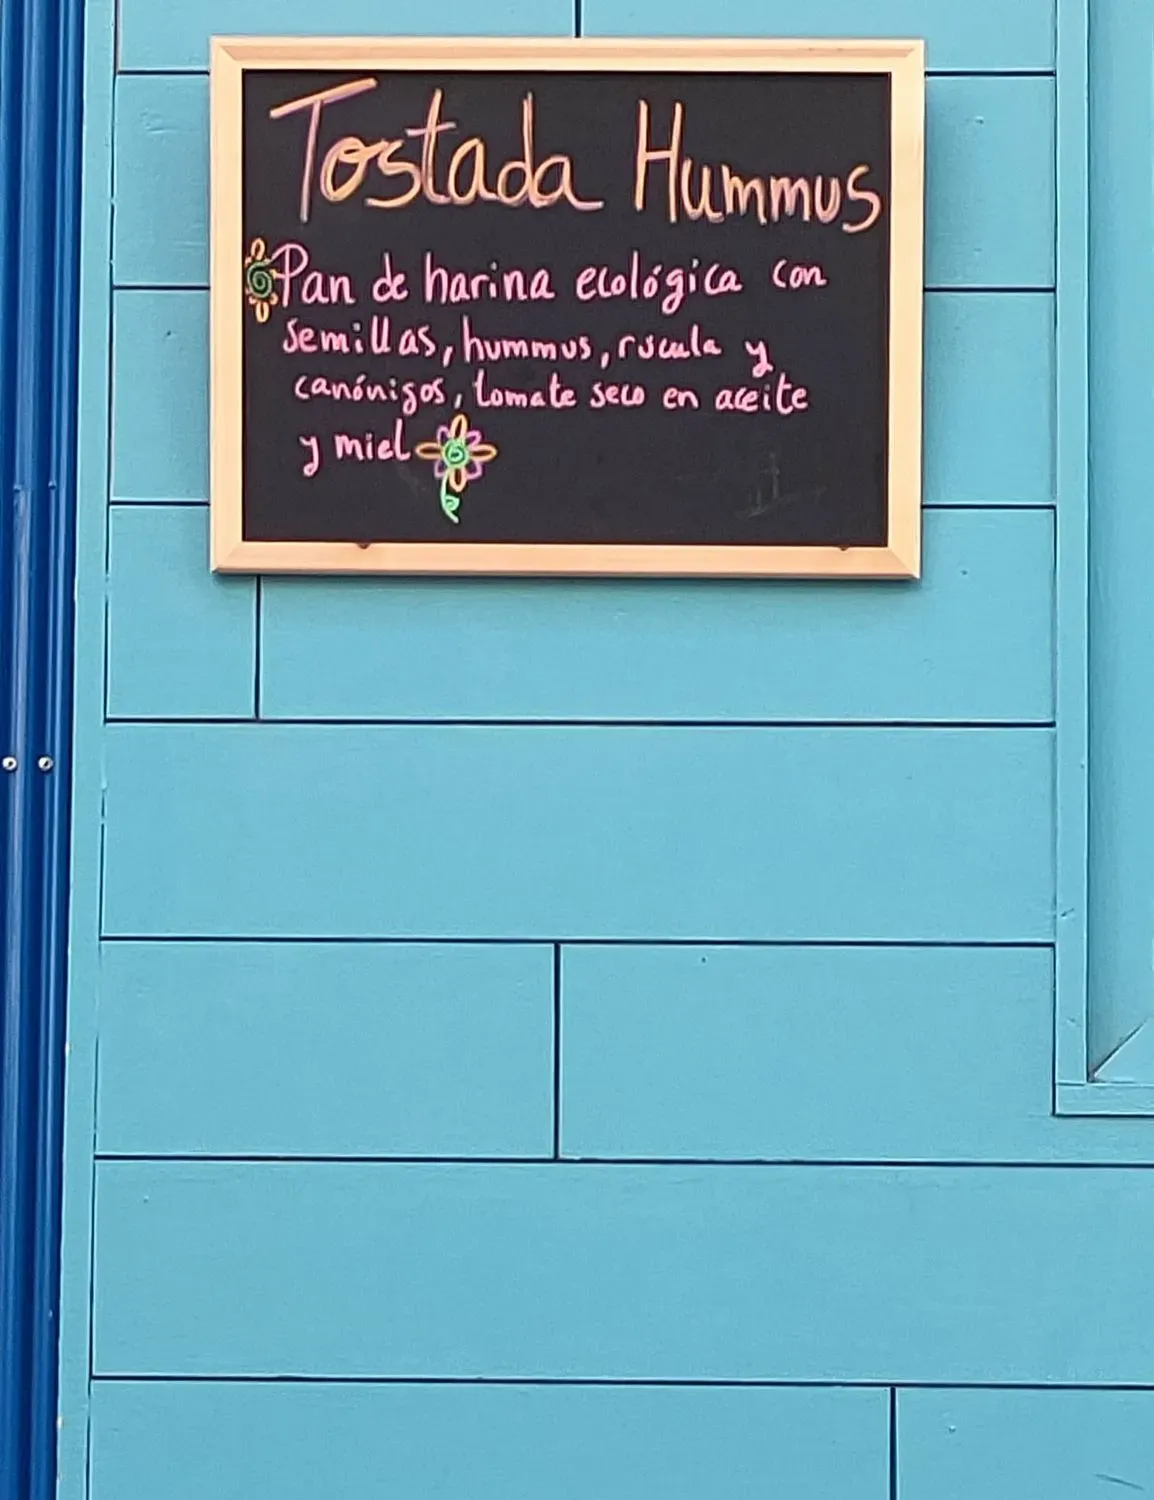 Tostada Hummus
Pan de harina ecológica con
semillas, hummus, rúcula y
canónigos, tomate seco en aceite
y miel